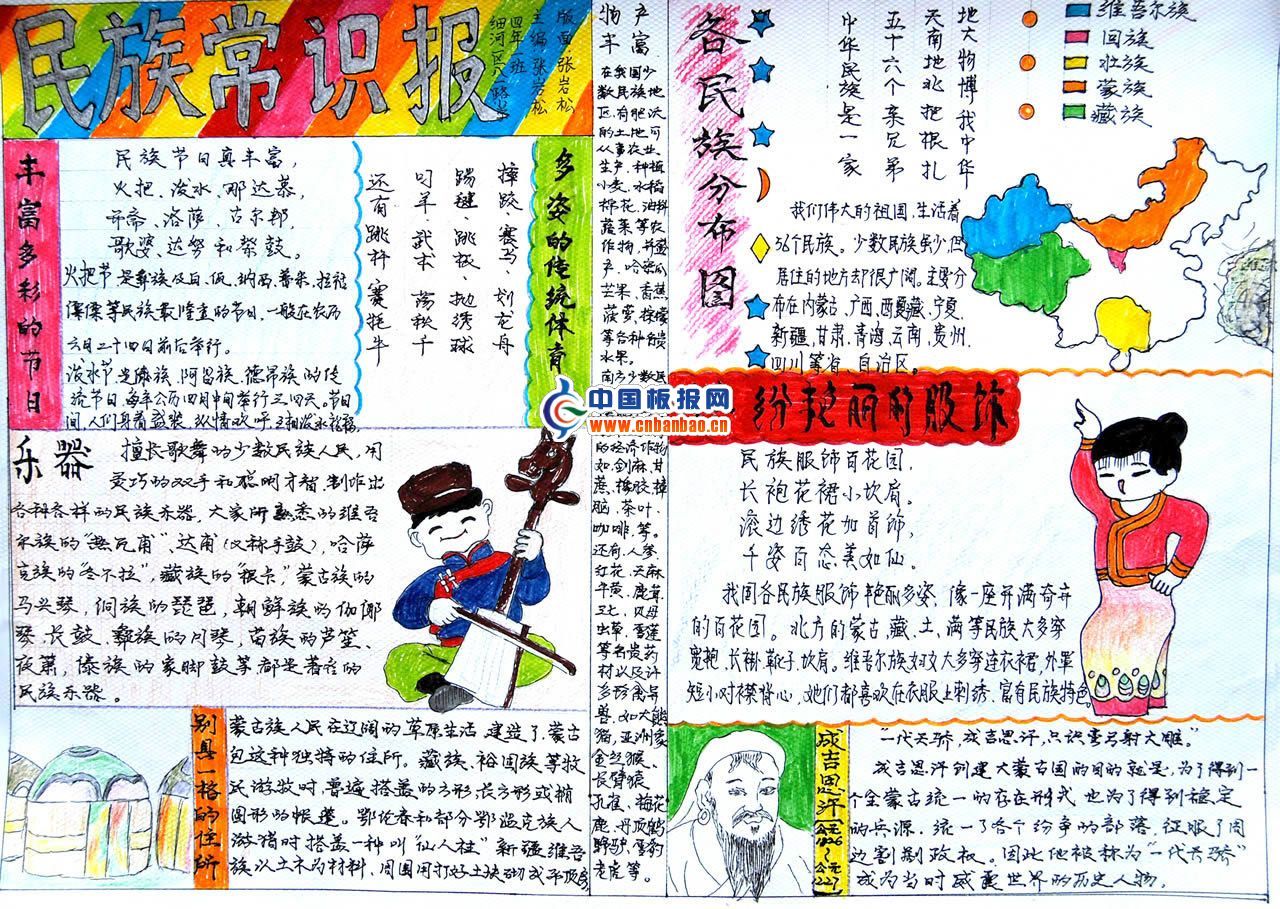 民族常识报
版面:张岩松
主编张岩松
四年一班
丰富多彩的节日
民族节日真丰富,
火把、泼水、那达慕,
开斋、洛萨、古尔邦,
歌婆、达努和祭鼓。
火把节是彝族及白、佤、纳西、普米、拉祜
傈僳等民族最隆重的节日,一般在农历
六月二十四日前后举行。
泼水节是傣族、阿昌族、德昂族的传
统节日,每年公历四月中旬举行三四天,节日
间,人们身着盛装,纵情欢呼
多姿的传统体育
摔跤、赛马、划龙舟
踢毽、跳板、抛绣球
叼羊、武术、荡秋千
还有跳杵、赛牦牛
乐器
擅长歌舞的少数民族人民,用
灵巧的双手和聪明才智,制作出
各种各样的民族乐器,大家所熟悉的维吾
尔族的“热瓦甫”、达甫(又称手鼓),哈萨
克族的“冬不拉”,藏族的“根卡”,蒙古族的
马头琴,侗族的琵琶,朝鲜族的伽倻
琴、长鼓、彝族的月琴,苗族的芦笙、
夜萧,傣族的象脚鼓等都是著名的
民族乐器。
别具一格的住所
蒙古族人民在辽阔的草原生活,建造了蒙古
包这种独特的住所。藏族、裕固族等牧
民游牧时,普遍搭盖的方形、长方形或椭
圆形的帐篷。鄂伦春和部分鄂温克族人
游猎时搭盖一种叫“仙人柱”新疆维吾
族以土木为材料,周围用打好土块砌成平顶房
物产丰富
在我国少
数民族地
区,有肥沃
的土地可
从事农业
生产,种植
小麦、水稻
棉花、油料
蔬菜等农
作物,并盛
产、哈密瓜
芒果、香蕉
菠萝、柠檬
等各种各类
水果。
南方少数民
的经济作物
如,剑麻,甘
蔗、橡胶,樟
脑、茶叶、
咖啡,等。
还有,人参、
红花、天麻
牛黄、鹿茸
三七、贝母
虫草、雪莲
等名贵药
材以及许
多珍禽与
兽,如大熊
猫,亚洲象
金丝猴、
长臂猿、
孔雀、梅花
鹿、丹顶鹤
野驴、雪豹
老虎等。
中国板报网
www.cnbanbao.cn
各民族分布图
地大物博我中华
天南地北把根扎
五十六个亲兄弟
中华民族是一家
维吾尔族
回族
壮族
蒙族
藏族
我们伟大的祖国,生活着
56个民族。少数民族虽少,但
居住的地方却很广阔。主要分
布在内蒙古、广西、西藏、宁夏、
新疆,甘肃,青海,云南,贵州,
四川等省、自治区。
纷艳丽的服饰
民族服饰百花园,
长袍花裙小坎肩。
滚边绣花加首饰,
千姿百态美如仙。
我国各民族服饰艳丽多姿,像一座开满奇卉
的百花园。北方的蒙古、藏、土、满等民族大多穿
宽袍、长褂、靴子、坎肩。维吾尔族妇女大多穿连衣裙,外罩
短小对襟背心,她们都喜欢在衣服上刺绣,富有民族特色。
成吉思汗
“一代天骄,成吉思汗,只识弯弓射大雕。”
成吉思汗创建大蒙古国的目的就是,为了得到一
个全蒙古统一的存在形式,也为了得到稳定
的兵源。统一了各个纷争的部落,征服了周
边割剧政权。因此他被称为“一代天骄”
成为当时威震世界的历史人物。